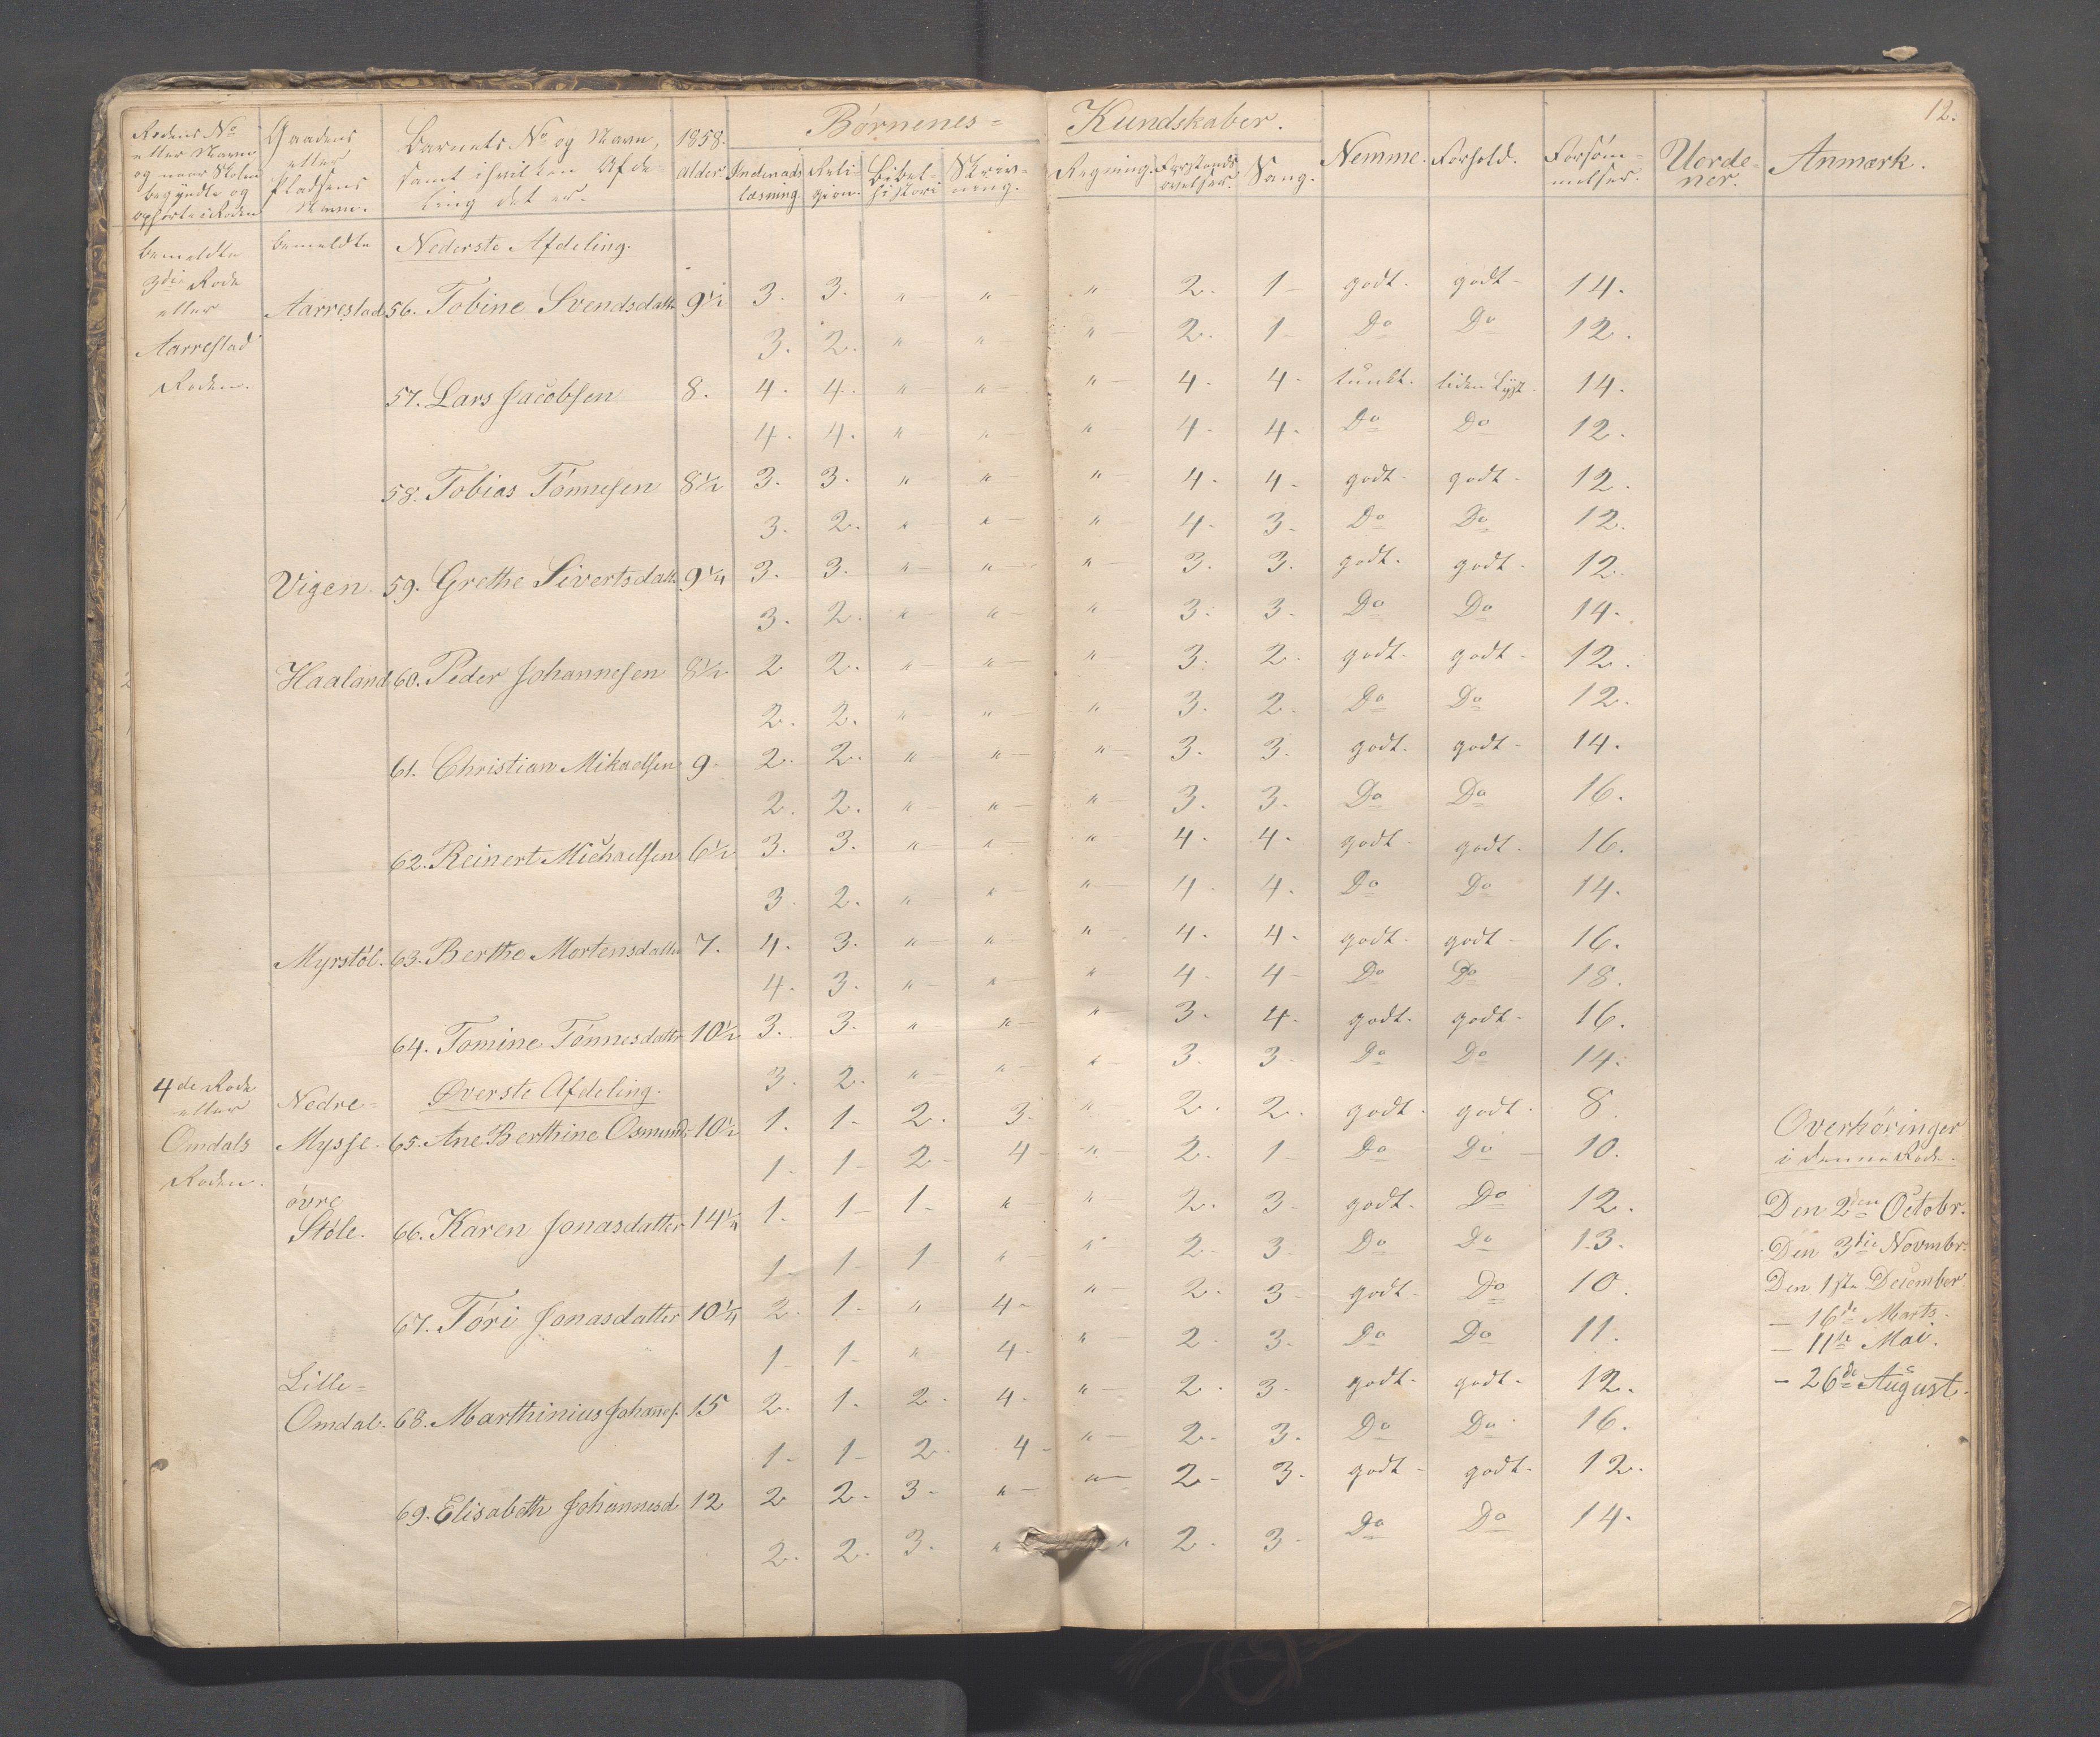 12.
Børnenes= Kundskaber.
Rodens No eller Navn og naar Skolen begyndte og ophørte i Roden
Gaardens eller Pladsens Navn.
Barnets No og Navn, samt i hvilken Afdeling det er.
1858. Alder.
Indenads læsning.
Religion.
Bibelhistorie
Skrivning.
Regning.
Forstands øvelser.
Sang.
Nemme.
Forhold.
Forsømmelser.
Uordener.
Anmærk.
bemeldte bemeldte Nederste Afdeling.
3die Rode
eller
Aarrestad
Roden.
Aarrestad 56. Tobine Svendsdatter 9½ 3. 3. " " " 2. 1 godt. godt 14.
3. 2. " " " 2. 1 Do Do 12.
57. Lars Jacobsen 8. 4. 4. " " " 4. 4. tungt. liden Lyst 14.
4. 4. " " " 4. 4. Do Do 12.
58. Tobias Tønnesen 8½ 3. 3. " " " 4. 4. godt. godt 12.
3. 2. " " " 4. 3. Do Do 12.
Vigen. 59. Grethe Sivertsdatt 9¼ 3. 3. " " " 3. 3. godt. godt 12.
3. 2. " " " 3. 3. Do Do 14.
Haaland 60. Peder Johannesen 8½ 2 2. " " " 3. 2. godt. godt 12.
2. 2. " " " 3. 2. Do Do 12.
61. Christian Mikaelsen 9. 2. 2. " " " 3. 3. godt. godt 14.
2. 2. " " " 3. 3. Do Do 16.
62. Reinert Michaelsen 6½ 3. 3. " " " 4. 4. godt. godt. 16.
3. 2. " " " 4. 4. Do Do 14.
Myrstøl. 63. Berthe Mortensdatter 7. 4. 3. " " " 4. 4. godt. godt 16.
4. 3. " " " 4. 4 Do Do 18.
64. Tomine Tønnesdatter 10½ 3. 3. " " " 3. 4. godt. godt. 16.
3. 2. " " " 3. 3 Do Do 14.
4de Rode
eller
Omdals
Roden.
Øverste Afdeling.
Nedre=
Mysse. 65. Ane Berthine Osmunds 10½ 1. 1. 2. 3. " 2. 2. godt. godt. 8.
1. 1 2 4 " 2. 1 Do Do 10.
øvre
Støle. 66. Karen Jonasdatter 14¼ 1. 1 1. " " 2. 3. godt. Do 12.
1. 1 1 " " 2. 3. Do Do 13.
67. Tøri Jonasdatter 10¼ 2. 1. " 4. " 2. 3. godt. Do 10.
1. 1. " 4. " 2. 3. Do Do 11.
Lille=
Omdal. 68. Marthinius Johannes. 15 2. 1. 2. 4. " 2. 3. godt. godt. 12.
1. 1 2. 4 " 2. 3. Do Do 16.
69. Elisabeth Johannesd 12 2 2. 3. " " 2. 3. godt godt. 12.
2. 2. 3. " " 2. 3. Do Do 14.
Overhøringer
i denne Rode.
Den 2den Octobr.
Den 3die Novmbr.
Den 1ste December
— 16de Marts.
— 11te Mai.
— 26de August.